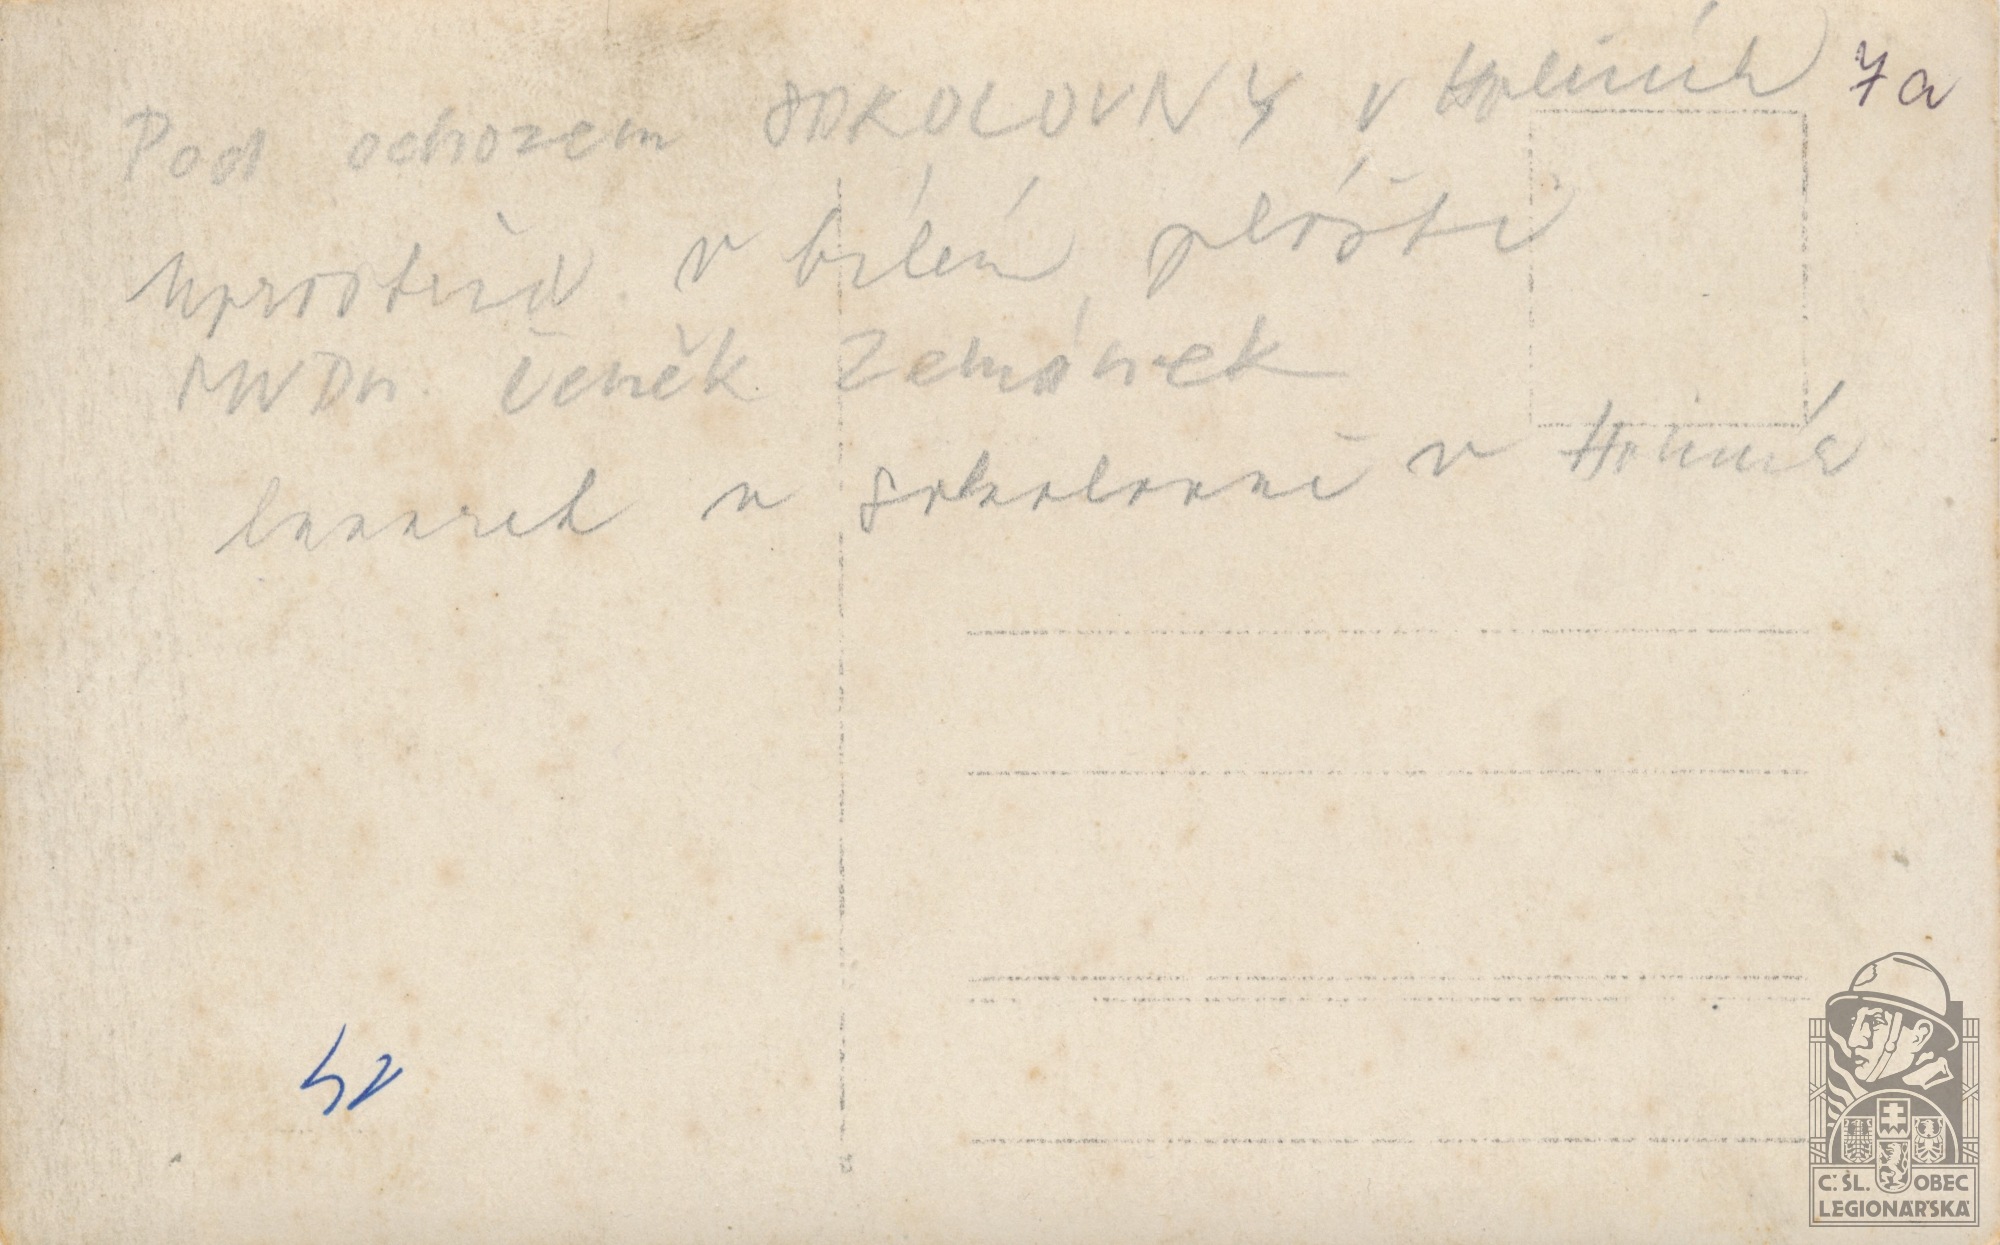 Pod ochozem SOKOLOVNY v 7a
uprostřed v bílém plášti
MUDr. Čeněk Zemánek
lazaret v sokolovně v
42
Č. SL. OBEC
LEGIONÁŘSKÁ